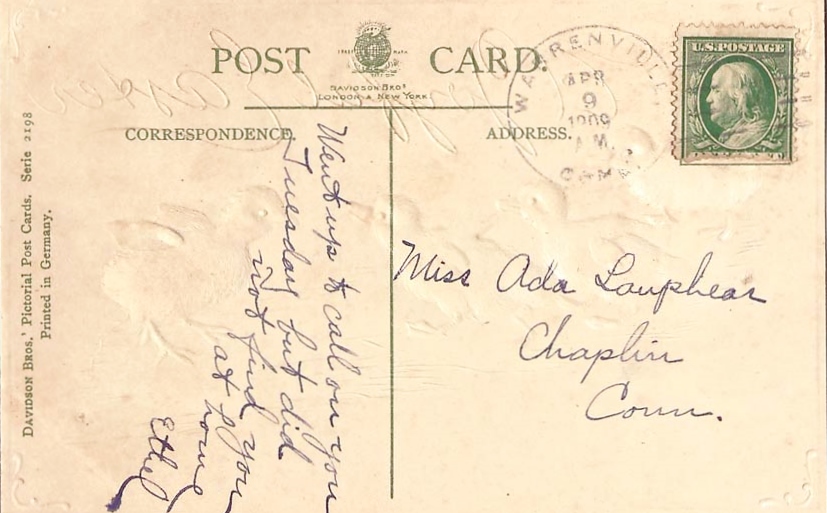 POST CARD.
DAVIDSON BROS
LONDON & NEW YORK.
CORRESPONDENCE.
ADDRESS.
WARRENVILLE,
APR
9
1909
A.M.
CONN.
U.S. POSTAGE
Went up to call on you
Tuesday but did
not find you
at home
Ethel
Miss Ada Lanphear
Chaplin
Conn.
DAVIDSON BROS.' Pictorial Post Cards. Serie 2198
Printed in Germany.